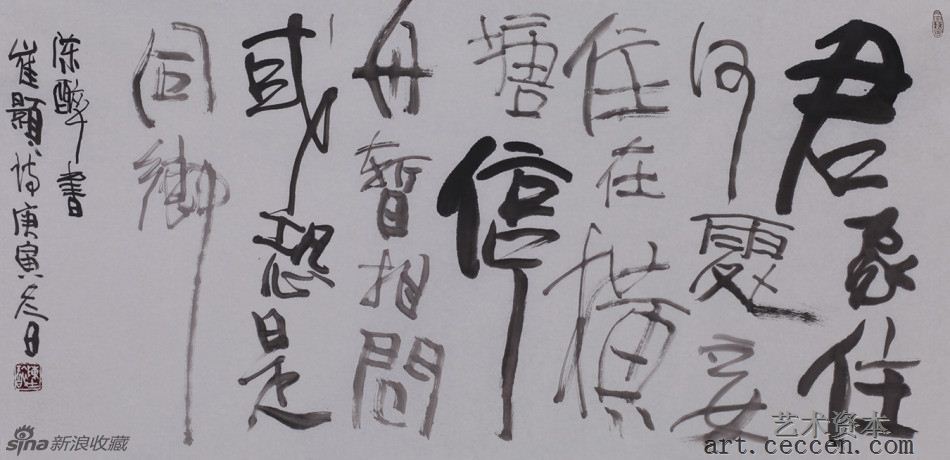 君家住
何處妾
住在横
塘停
舟暫相問
或恐是
同鄉
陈醉書
崔顥诗庚寅冬日
sina新浪收藏
艺术资本
art.ceccen.com